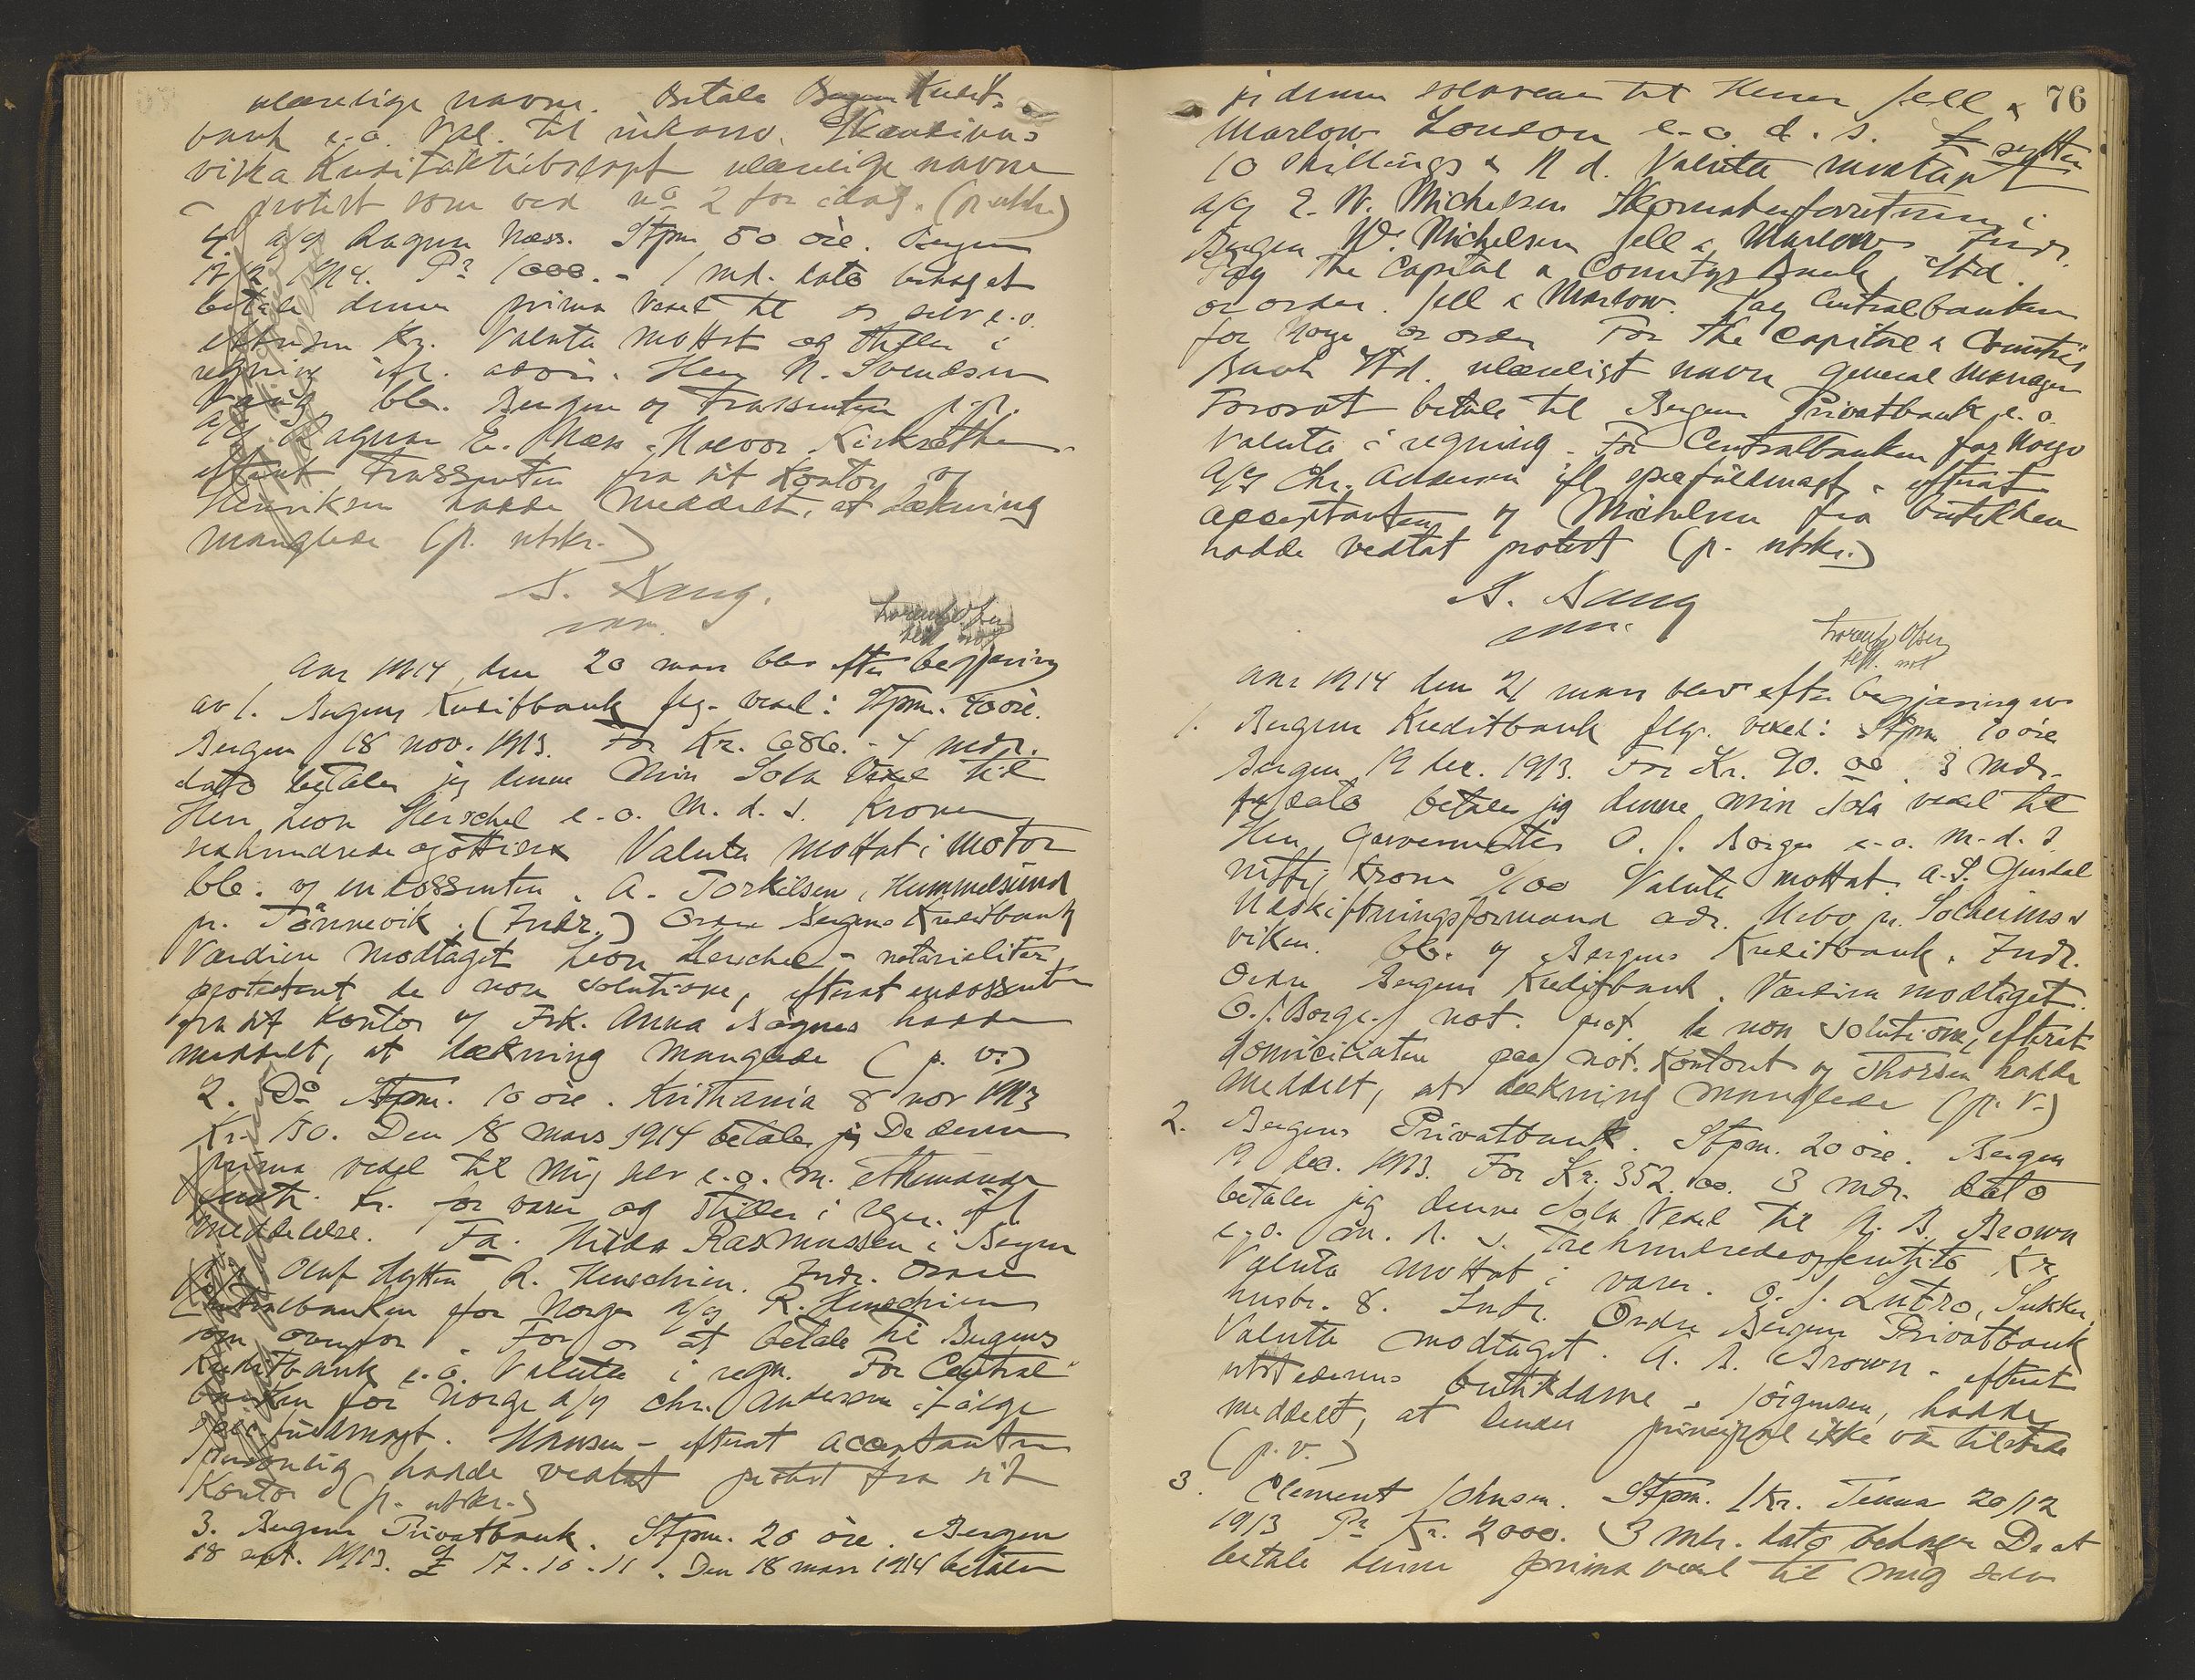 ulæselige navne. Betale Bergens Kredit-
bank e.o. Val. til inkasso. Skandina-
viska Kreditaktiebolaget ulæselige navne
- protest som ved no 2 for idag. (p. utskr.)
4. a/s Ragnar Næss. Stpm 50 øre. Bergen
1914. Pr 1000.- 1 md. dato behag at
betale denne prima vexel til os selv e.o.
Kr. Valuta mottat og stilles i
regning ifl. advis. Herr N. Svendsen
blb. Bergen og Trassenten p.p.
a/s Ragnar E. Næss. Halvor
efterat Trassenten fra sit kontor ved
Henriksen hadde meddelt, at dækning
manglede (p. utskr.)
Lorentz Olsen
Aar 1914 den 20 mars blev efter begjæring
av 1. Bergens Kreditbank flg. vexel: Stpm. 40 øre.
Bergen 18 nov. 1913. For Kr. 686.- 4 mdr.
dato betaler jeg denne min Sola Vexel til
Herr Leon Herschel e.o. M. d. S. Kroner
sekshundrede ogottisex Valuta mottat i Motor
blb. og endossenten. A. Torkilsen, Hummelsund
pr. Tönnevik. (Indr.) Ordre Bergens Kreditbank
Værdien modtaget Leon Herschel - notarialiter
protestert de non solutione, efterat endossenten
fra sit kontor ved Frk. Anna Bøgnes hadde
meddelt, at dækning manglede (p. v.)
2. Do Stpm. 10 øre. Kristiania 8 nov 1913
Kr. 150. Den 18 mars 1914 betaler De denne
prima vexel til mig selv e.o. m. ethundrede
femti. Kr. for varer og stilles i regn. ifl.
meddelelse. Fa. Hilda Rasmussen i Bergen
Oluf Hytten R. Henschien. Indr. Ordre
Centralbanken for Norge a/s R. Henschien
som ovenfor. For os at betale til Bergens
Kreditbank e.o. Valuta i regn. For Central-
banken for Norge a/s Chr. Andersen ifølge
spec. fuldmagt. Hansen - efterat acceptanten
personlig hadde vedtat protest fra sit
kontor (p. utskr.)
3. Bergens Privatbank. Stpm. 20 øre. Bergen
18 1913. £ 17.10.11. Den 18 mars 1914 betaler
76
denne solavexel til Herrer Jell &
Marlow London e.o. d. s. £ sytten
10 shillings & 11 d. Valuta mottat
a/s E. W. Michelsen Skomakerforretning i
Bergen W. Michelsen Jell & Marlow Indr.
Pay The Capital & Countys Bank Ltd.
or order. Jell & Marlow. Pay Centralbanken
for Norge or order For the Capital & Counties
Bank Ltd. ulæseligt navn General Manager
Forosat betale til Bergens Privatbank e.o.
Valuta i regning. For Centralbanken for Norge
a/s Chr. Andersen ifl. specfuldmagt - efterat
acceptanten ved Michelsen fra butikken
hadde vedtat protest (p. utskr.)
Lorentz Olsen
Aar 1914 den 21 mars blev efter begjæring av
1. Bergens Kreditbank flg. vexel: Stpm 10 øre
Bergen 19 dec. 1913. For Kr. 90.00. 3 mdr.
fra dato betaler jeg denne min sola vexel til
Herr Garvermester O. J. Borge e.o. m.d.s.
nitti Kroner 0/00 Valuta mottat. A. S. Gjerdal
Utskiftningsformand adr. Nebo pr. Solheims-
viken. blb. ved Bergens Kreditbank. Indr.
Ordre Bergens Kreditbank. Værdien modtaget.
O. J. Borge. not. prot. de non solutione, efterat
domiciliaten paa not. kontoret ved Thorsen hadde
meddelt, at dækning manglede (p. v.)
2. Bergens Privatbank. Stpm. 20 øre. Bergen
19 dec. 1913. For Kr. 352.00. 3 mdr. dato
betaler jeg denne Sola Vexel til A. B. Brown
e.o. m. d. s. trehundredeogfemtito Kr
Valuta mottat i varer. O. J. Lutro, Sukker
husbr. 8. Indr. Ordre Bergens Privatbank
Valuta modtaget. A. B. Brown - efterat
utstederens butikdame Jörgensen, hadde
meddelt, at hendes principal ikke var tilstede
(p. v.)
3. Clement Johnsen. Stpm. 1 Kr. Tenna 20/12
1913 Pr Kr. 2000. 3 mdr. dato behager De at
betale denne prima vexel til mig selv